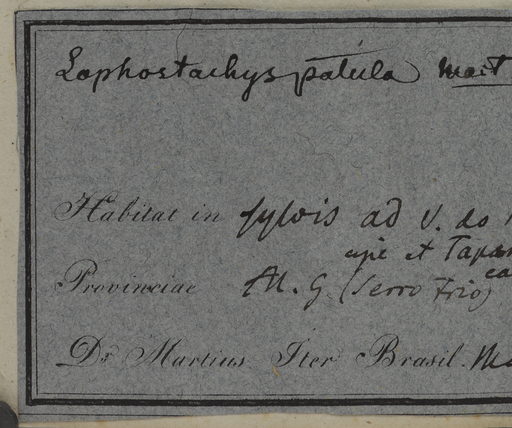 Lophostachys patula Mart
Habitat in sylvis ad V. do
et Tapan
Provinciae M. G. (Serro Frio)
Dr Martius Iter Brasil. M